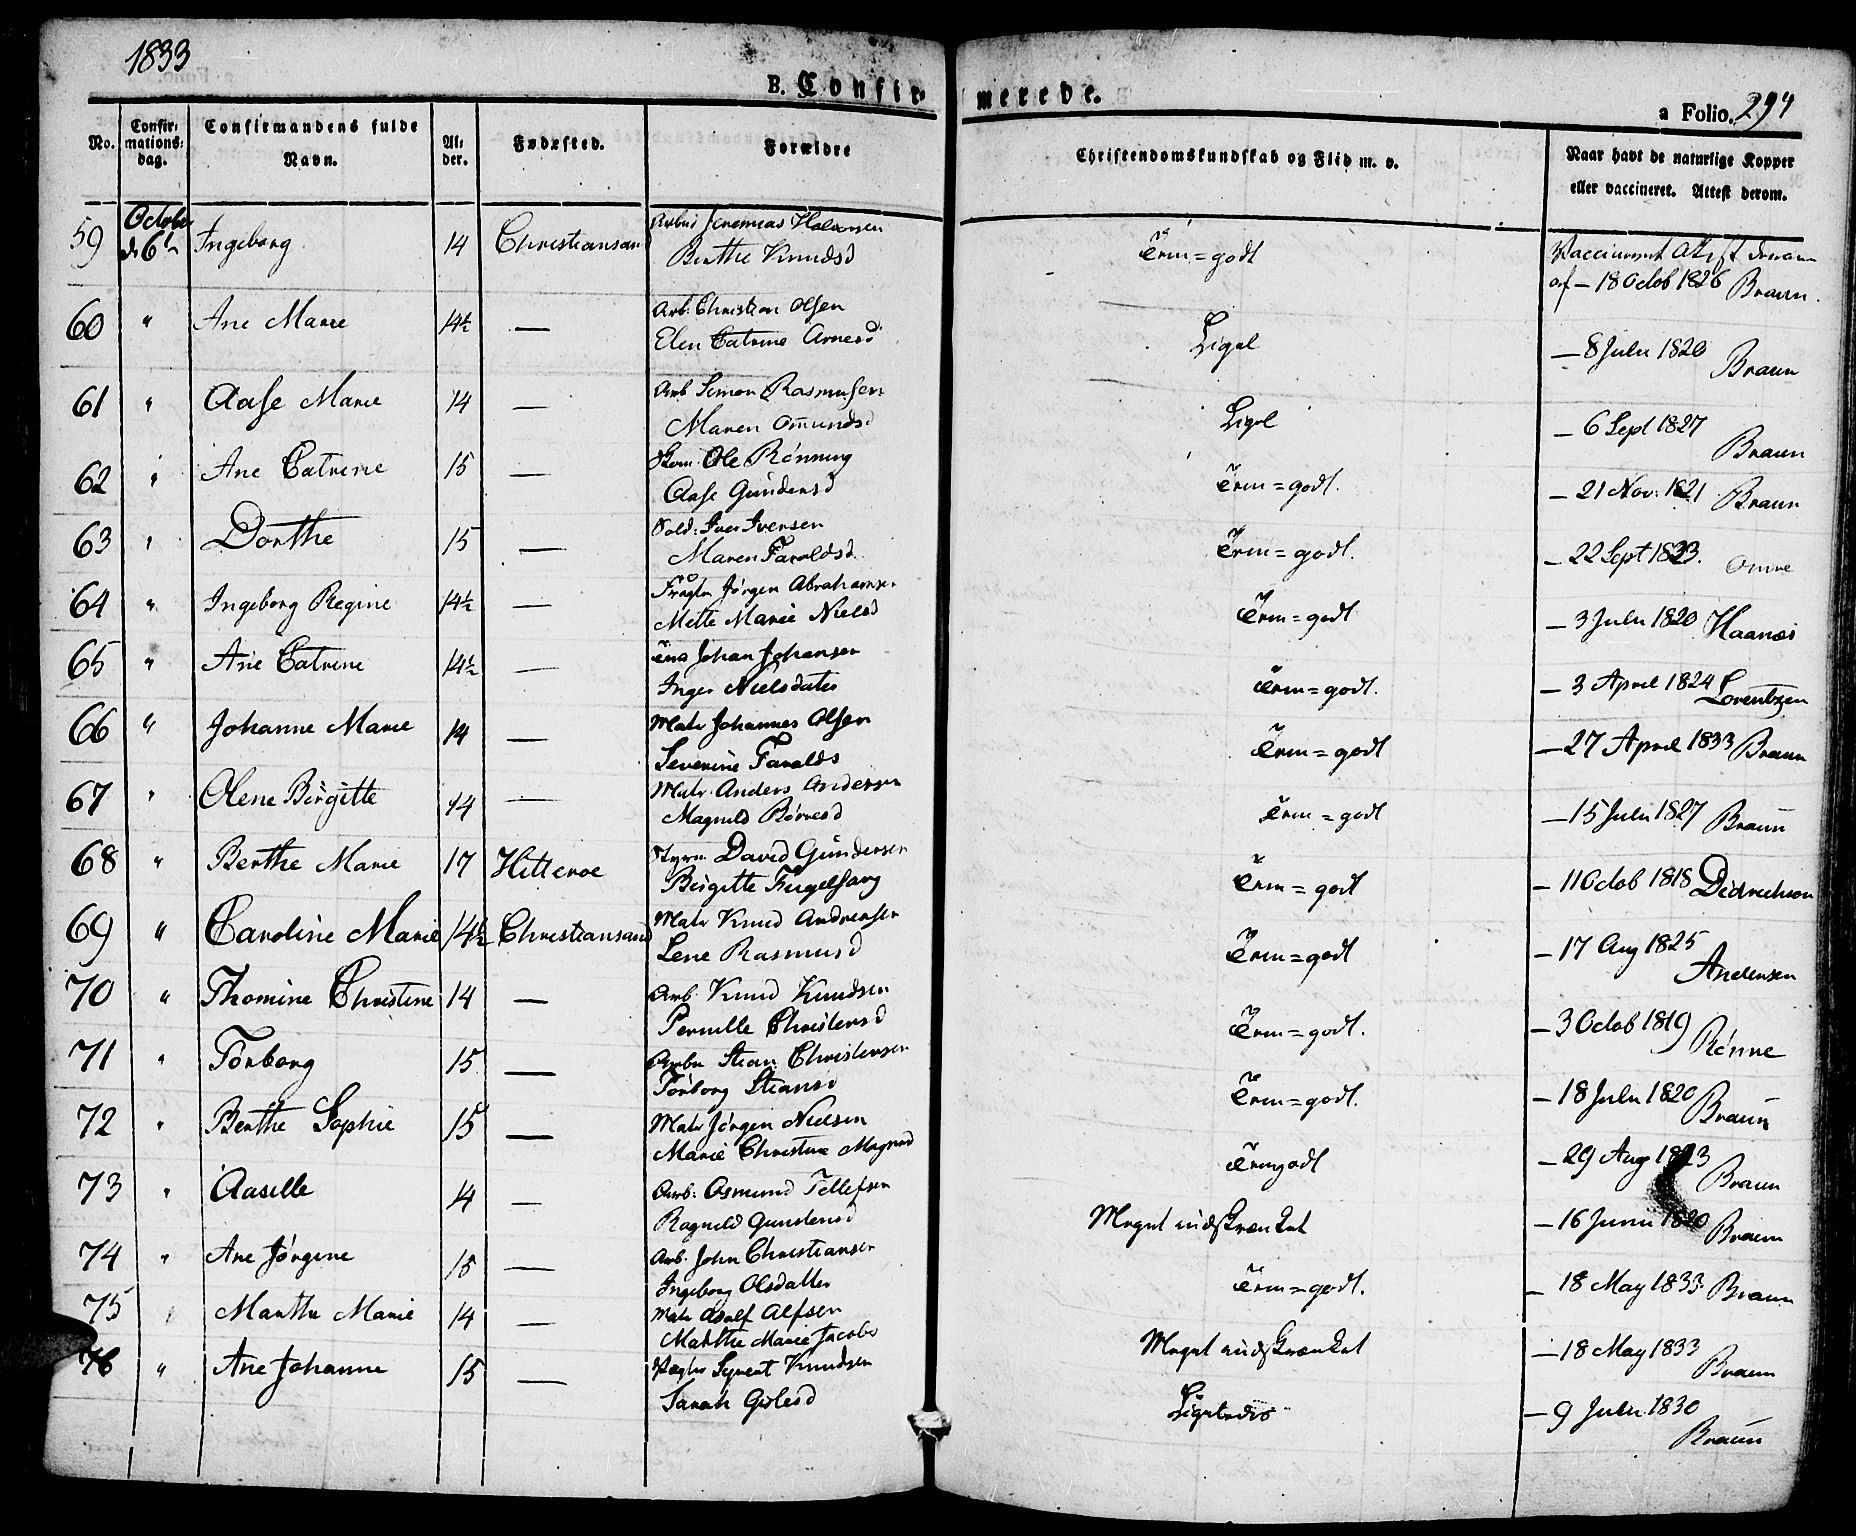 1833
B. Confirmerede.
a Folio. 294
No.
Confirmations-dag.
Confirmandens fulde Navn.
Alder.
Fødested.
Forældre
Christendomskundskab og Flid m. v.
Naar havt de naturlige Kopper eller vaccineret. Attest derom.
59 Octobr d. 6te Ingeborg 14 Christiansand Jeremias Halvorsen
Berthe Knudsd Trin=godt Vaccineret Attest derom
af - 18 Octob 1826 Braun.
60 " Ane Marie 14½ — Arb: Christian Olsen
Elen Catrine Arnesd Ligel — 8 Julii 1820 Braun
61 " Aase Marie 14 — Arb Simon Rasmusen
Maren Omundsd Ligel — 6 Sept 1827 Braun
62 " Ane Catrine 15 — Skom. Ole Rönning
Aase Gundersd Trin=godt. — 21 Nov: 1821 Braun
63 " Dorthe 15 — Sold: Iver Iversen
Maren Faraldsd. Trin=godt. — 22 Sept 1833. Omre
64 " Ingeborg Regine 14½ — Jörgen Abrahamsen
Mette Marie Nielsd Trin=godt — 3 Julii 1820 Haanæs
65 " Ane Catrine 14½ — Johan Johansen
Inger Nielsdater Trin=godt. — 3 April 1824 Lorentzen
66 " Johanne Marie 14 — Matr Johannes Olsen
Severine Faralds Trin=godt — 27 April 1833 Braun
67 " Olene Birgitte 14 — Matr. Anders Andersen
Magnild Börresd Trin=godt — 15 Julii 1827 Braun
68 " Berthe Marie 17 Hitteroe Styrm David Gundersen
Birgitte Fugelsang Trin=godt — 11 Octob 1818 Didrichson
69 " Caroline Marie 14½ Christiansand Matr Knud Andreasen
Lene Rasmusd Trin=godt — 17 Aug 1825 Andersen
70 " Thomine Christine 14 — Arb: Knud Knudsen
Pernille Christensd Trin=godt. — 3 Octob 1819 Rönne
71 " Torborg 15 — Arbr Stian Christensen
Torborg Stiansd Trin=godt. — 18 Julii 1820 Braun
72 " Berthe Sophie 15 — Matr Jörgen Nielsen
Marie Christine Magnsd Trin godt — 29 Aug 1823 Braun
73 " Aaselle 14 — Arb: Osmund Tellefsen
Ragnild Gunstensd Meget indskrænket — 16 Junii 1820 Braun
74 " Ane Jörgine 15 — Arb. John Christiansen
Ingeborg Olsdatter Trin=godt. — 18 May 1833. Braun
75 " Marthe Marie 14 — Matr Adolf Alfsen
Marthe Marie Jacobs Meget indskrænket — 18 May 1833 Braun
76 " Ane Johanne 15 — Syvert Knudsen
Sarah Gislesd Ligeledis — 9 Julii 1830 Braun